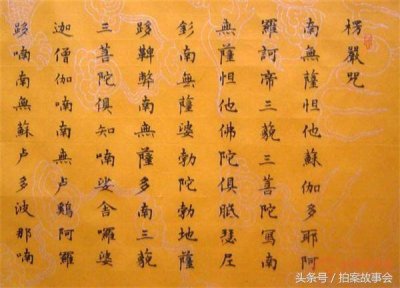 楞嚴咒
南無薩怛他蘇伽多耶阿
羅訶帝三藐三菩陀寫南
無薩怛他佛陀俱胝瑟尼
釤南無薩婆勃陀勃地薩
跢鞞弊南無薩多南三藐
三菩陀俱知喃娑舍囉婆
迦僧伽喃南無卢鷄阿羅
跢喃南無蘇卢多波那喃
头条号 / 拍案故事会